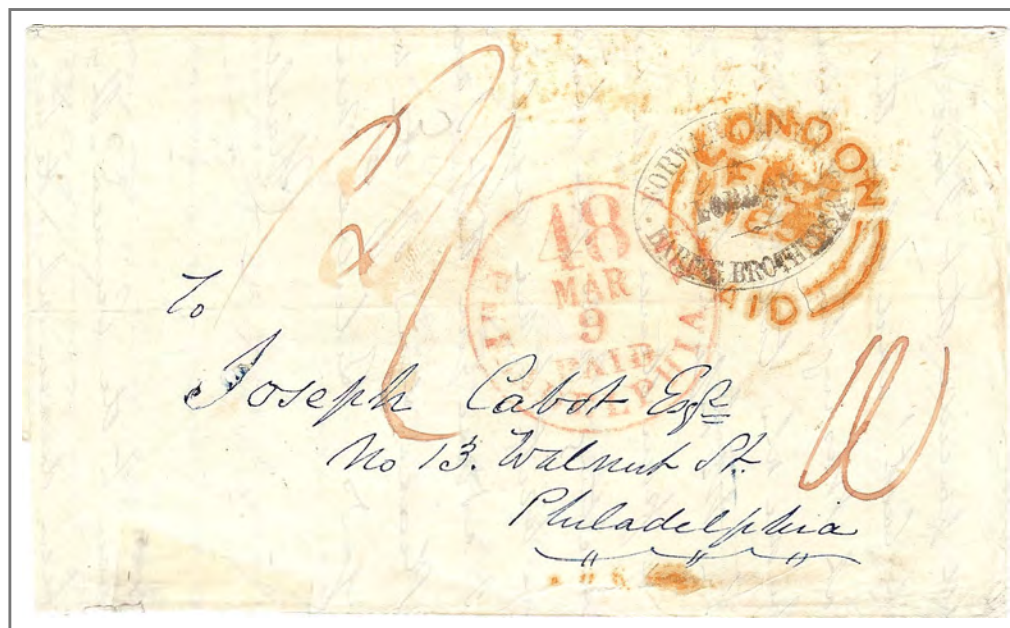 LONDON
PAID
BARING BROTHERS
48
MAR
9
PAID
PHILADELPHIA
To
Joseph Cabot Esqre
No 13. Walnut St.
Philadelphia